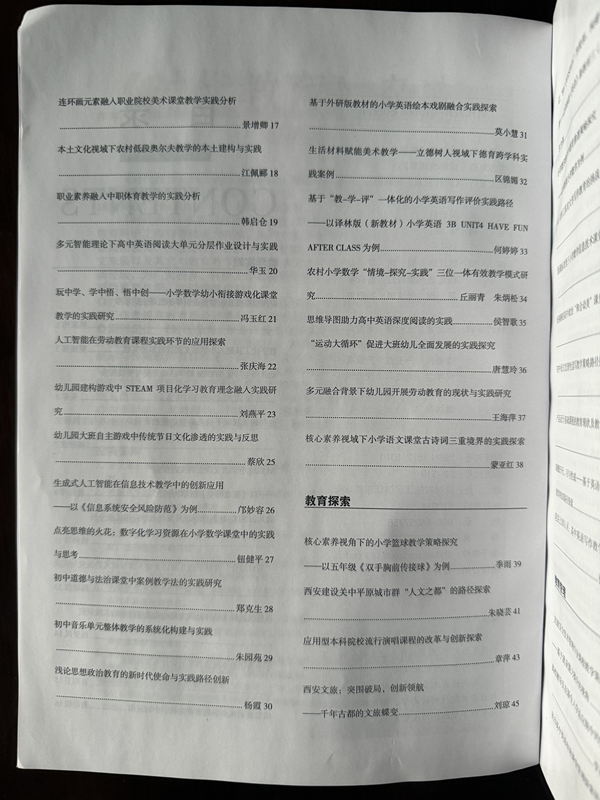 连环画元素融入职业院校美术课堂教学实践分析
景增卿 17
本土文化视域下农村低段奥尔夫教学的本土建构与实践
江佩郦 18
职业素养融入中职体育教学的实践分析
韩启仓 19
多元智能理论下高中英语阅读大单元分层作业设计与实践
华玉 20
玩中学、学中悟、悟中创——小学数学幼小衔接游戏化课堂
教学的实践研究 冯玉红 21
人工智能在劳动教育课程实践环节的应用探索
张庆海 22
幼儿园建构游戏中 STEAM 项目化学习教育理念融入实践研
究 刘燕平 23
幼儿园大班自主游戏中传统节日文化渗透的实践与反思
蔡欣 25
生成式人工智能在信息技术教学中的创新应用
——以《信息系统安全风险防范》为例 邝妙容 26
点亮思维的火花：数字化学习资源在小学数学课堂中的实践
与思考 钮健平 27
初中道德与法治课堂中案例教学法的实践研究
郑克生 28
初中音乐单元整体教学的系统化构建与实践
朱园苑 29
浅论思想政治教育的新时代使命与实践路径创新
杨霞 30
基于外研版教材的小学英语绘本戏剧融合实践探索
莫小慧 31
生活材料赋能美术教学——立德树人视域下德育跨学科实
践案例 区锦媚 32
基于“教-学-评”一体化的小学英语写作评价实践路径
——以译林版（新教材）小学英语 3B UNIT4 HAVE FUN
AFTER CLASS 为例 何婷婷 33
农村小学数学“情境-探究-实践”三位一体有效教学模式研
究 丘丽青 朱炳松 34
思维导图助力高中英语深度阅读的实践 侯智歌 35
“运动大循环”促进大班幼儿全面发展的实践探究
唐慧玲 36
多元融合背景下幼儿园开展劳动教育的现状与实践研究
王海萍 37
核心素养视域下小学语文课堂古诗词三重境界的实践探索
蒙亚红 38
教育探索
核心素养视角下的小学篮球教学策略探究
——以五年级《双手胸前传接球》为例 季雨 39
西安建设关中平原城市群“人文之都”的路径探索
朱晓芸 41
应用型本科院校流行演唱课程的改革与创新探索
章萍 43
西安文旅：突围破局，创新领航
——千年古都的文旅蝶变 刘琼 45